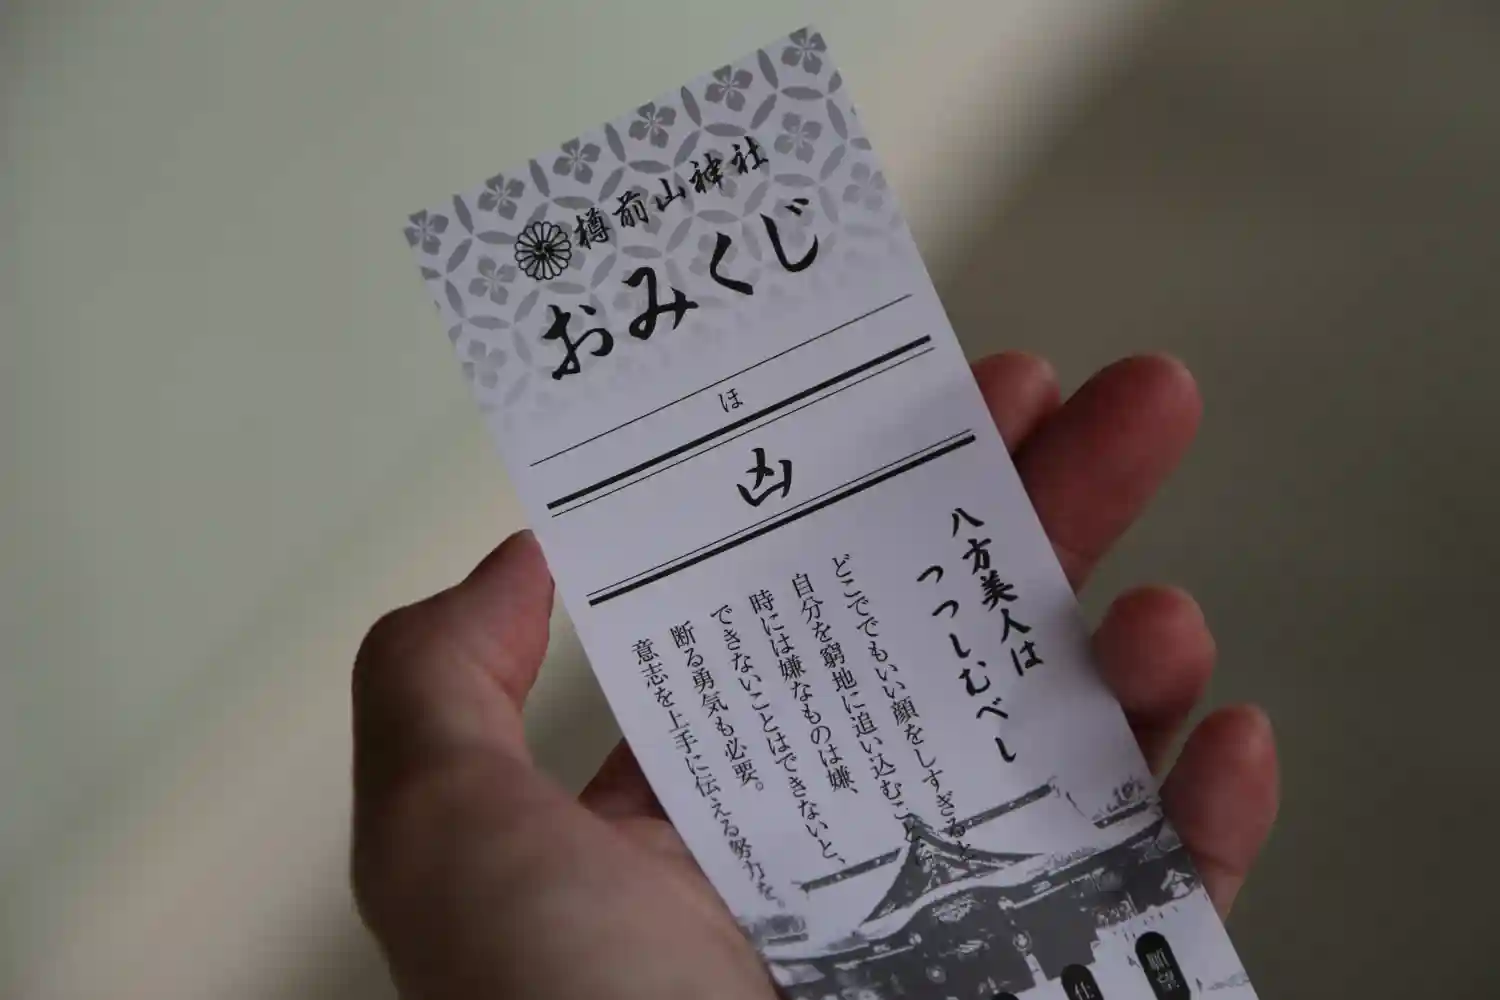 樽前山神社
おみくじ
ほ
凶
八方美人は
つつしむべし
どこででもいい顔をしすぎると
自分を窮地に追い込むことに
時には嫌なものは嫌、
できないことはできないと、
断る勇気も必要。
意志を上手に伝える努力を。
願望
仕